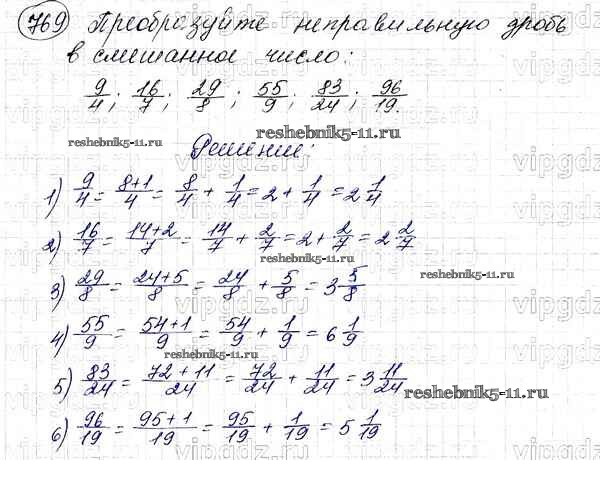 769 Преобразуйте неправильную дробь
в смешанное число:
9/4; 16/7; 29/8; 55/9; 83/24; 96/19.
reshebnik5-11.ru
reshebnik5-11.ru
Решение:
1) 9/4 = (8+1)/4 = 8/4 + 1/4 = 2 + 1/4 = 2 1/4
2) 16/7 = (14+2)/7 = 14/7 + 2/7 = 2 + 2/7 = 2 2/7
reshebnik5-11.ru
3) 29/8 = (24+5)/8 = 24/8 + 5/8 = 3 5/8
reshebnik5-11.ru
4) 55/9 = (54+1)/9 = 54/9 + 1/9 = 6 1/9
reshebnik5-11.ru
5) 83/24 = (72+11)/24 = 72/24 + 11/24 = 3 11/24
reshebnik5-11.ru
6) 96/19 = (95+1)/19 = 95/19 + 1/19 = 5 1/19
vipgdz.ru